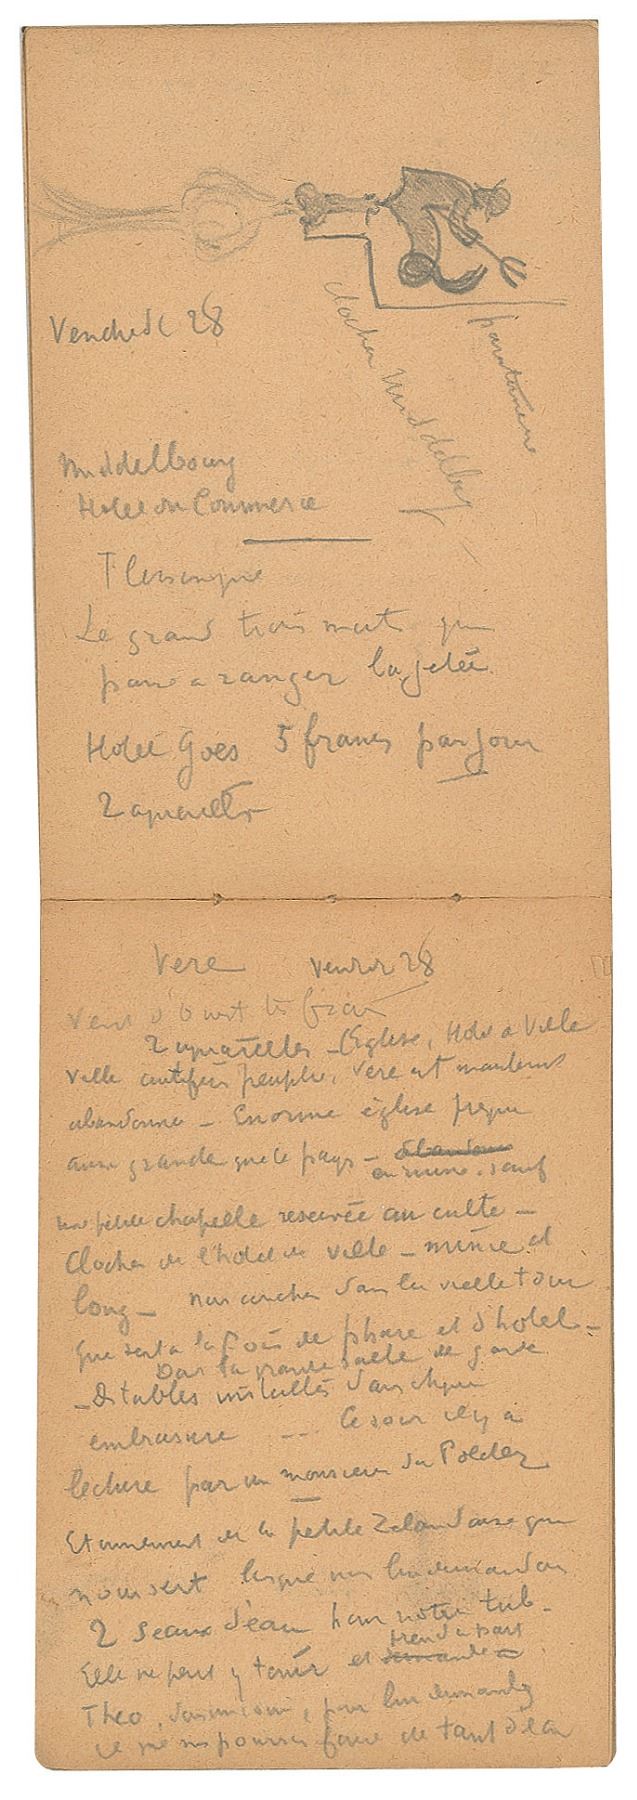 Vendredi 28
clocher Middelbg
paratonnerre
Middelbourg
Hotel du Commerce
Flessingue
Le grand trois mats qui
passe a ranger la jetée
Hotel Goes 5 francs par jour
2 aquarelles
Vere Vendr 28
Vent d'Ouest tr frais
2 aquarelles - Eglise, Hotel de Ville
Ville autrefois peuplée, Vere est maintenant
abandonnée - Enorme église presque
aussi grande que le pays - abandonn
en ruine. sauf
une petite chapelle reservée au culte -
Clocher de l'hotel de ville - mince et
long - nous couchons dans la vieille tour
que sert a la fois de phare et d'hotel -
Dans la grande salle de garde
- Des tables installées dans chque
embrasure --- Ce soir il y a
lecture par un monsieur du Polder
Etonnement de la petite Zelandaise qui
nous sert lorsque nous lui demandons
2 seaux d'eau pour notre tub -
Elle ne peut y tenir et demande a
prend a part
Theo, dans un coin, pour lui demander
ce que nous pouvons faire de tant d'eau